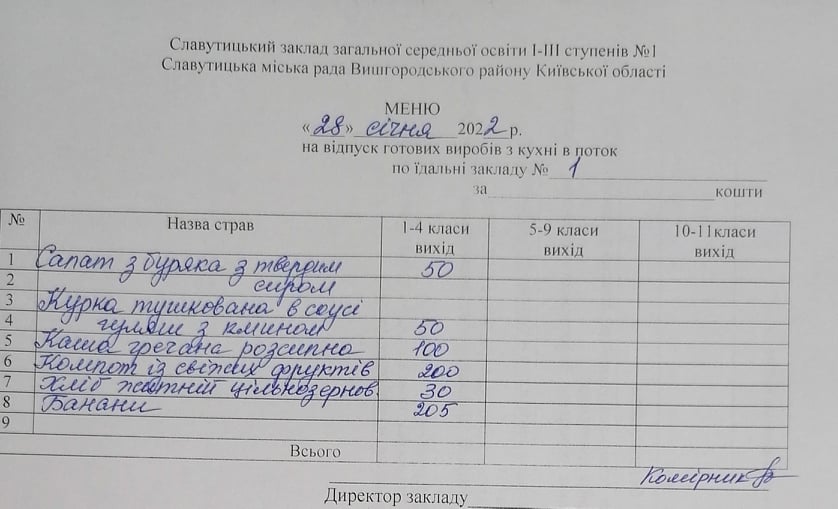 Славутицький заклад загальної середньої освіти І-ІІІ ступенів №1
Славутицька міська рада Вишгородського району Київської області
МЕНЮ
«28» січня 2022 р.
на відпуск готових виробів з кухні в поток
по їдальні закладу № 1
за кошти
№ Назва страв 1-4 класи вихід 5-9 класи вихід 10-11класи вихід
1 Салат з буряка з твердим 50
2 сиром
3 Курка тушкована в соусі
4 гуляш з кмином 50
5 Каша гречана розсипна 100
6 Компот із свіжих фруктів 200
7 Хліб житній цільнозернов. 30
8 Банани 205
9
Всього
Комірник
Директор закладу